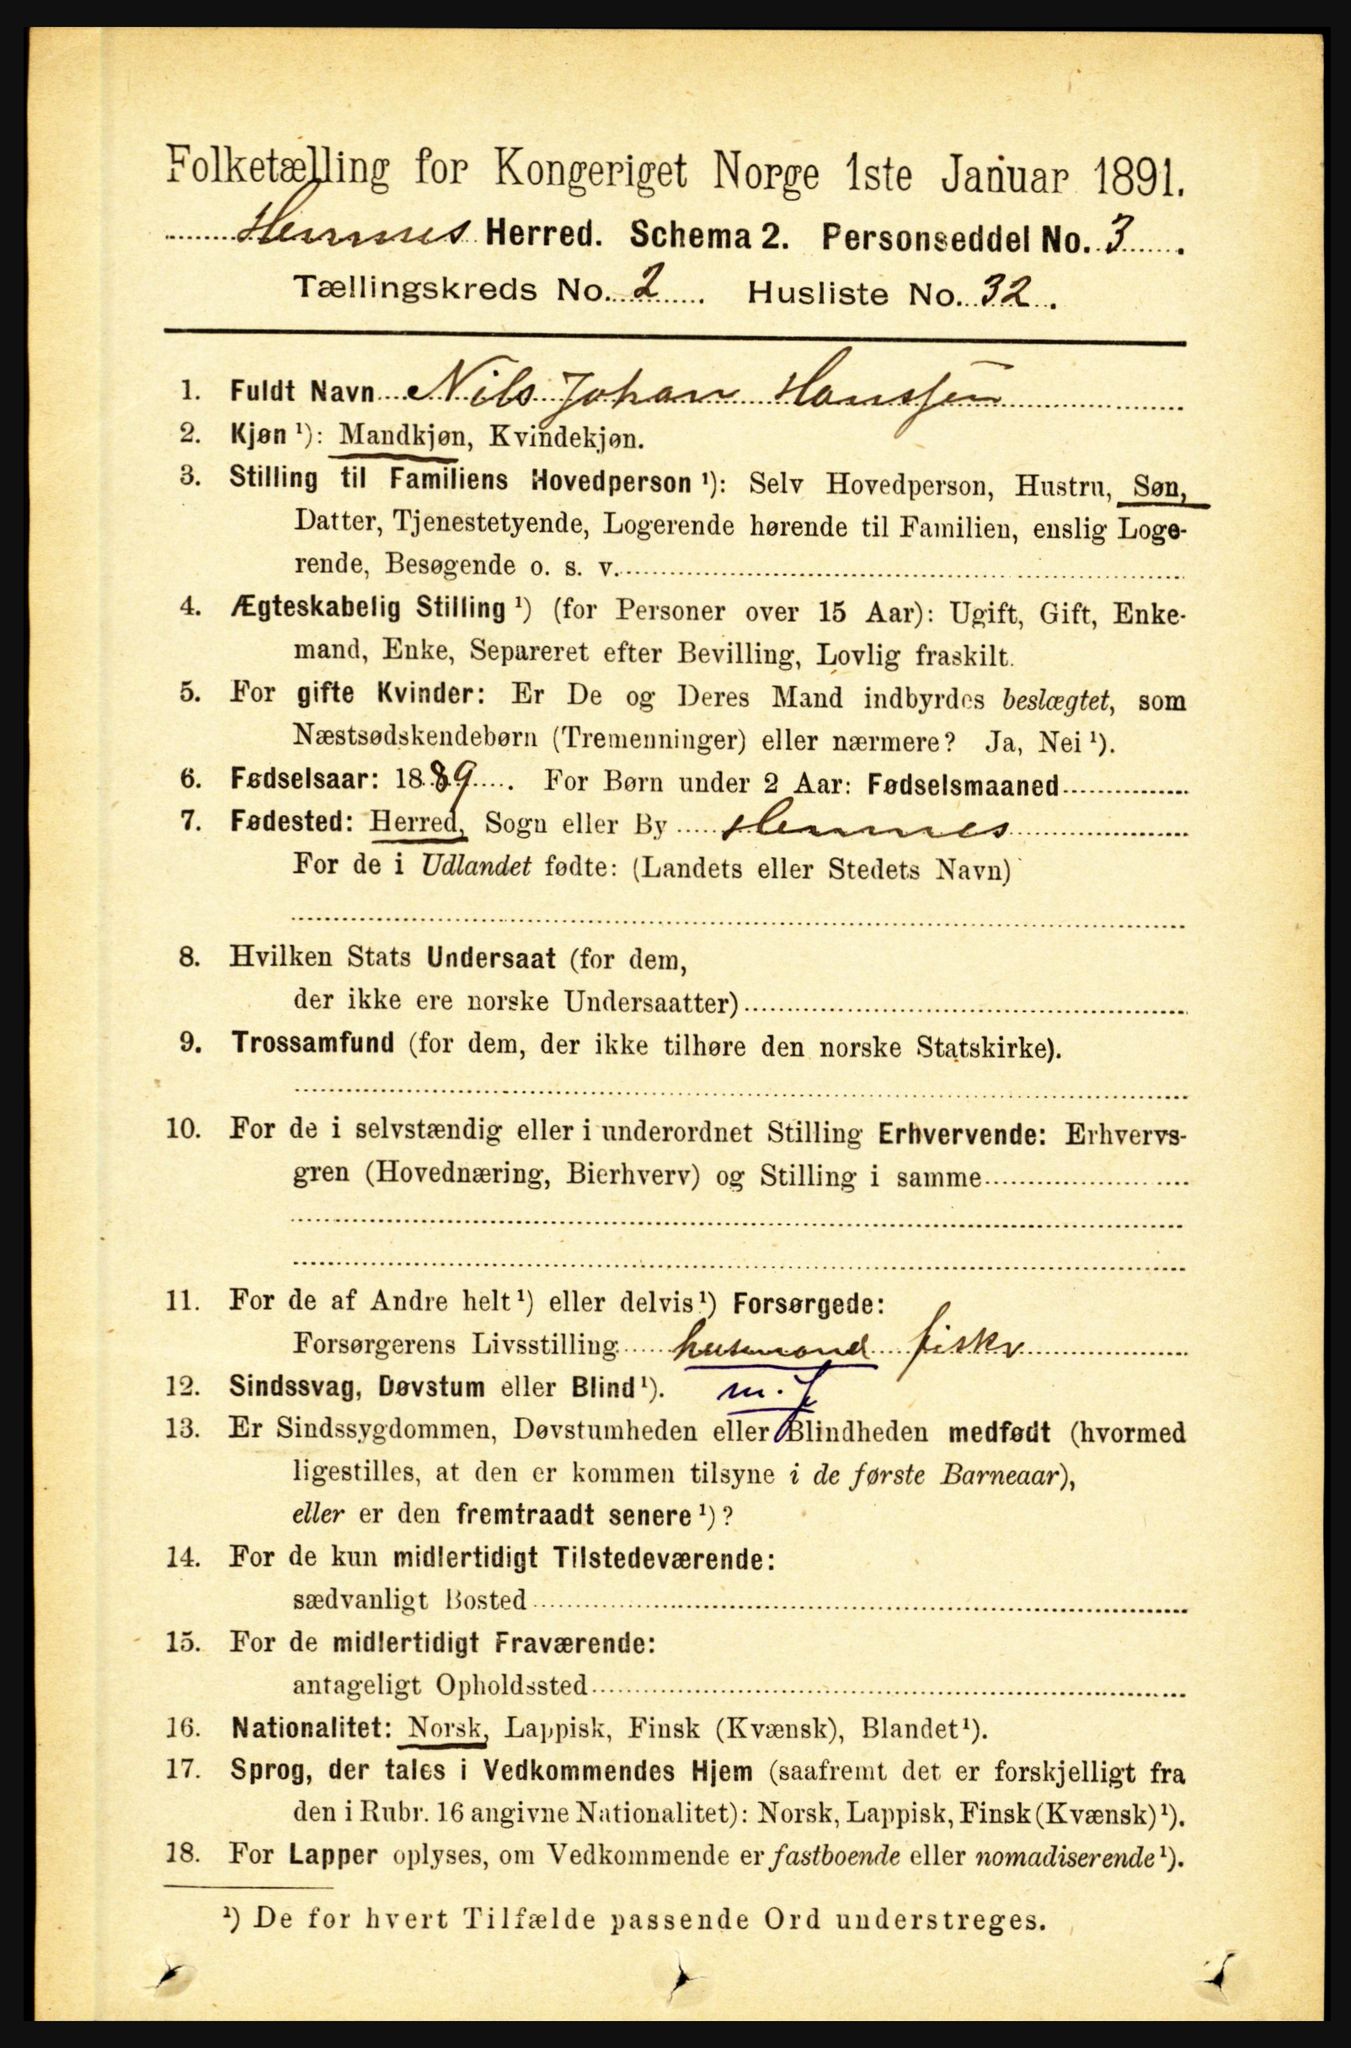 Folketælling for Kongeriget Norge 1ste Januar 1891.
Hemnes Herred. Schema 2. Personseddel No. 3.
Tællingskreds No. 2. Husliste No. 32.
1. Fuldt Navn Nils Johan Hanssen
2. Kjøn ¹): Mandkjøn, Kvindekjøn.
3. Stilling til Familiens Hovedperson ¹): Selv Hovedperson, Hustru, Søn,
Datter, Tjenestetyende, Logerende hørende til Familien, enslig Loge-
rende, Besøgende o. s. v.
4. Ægteskabelig Stilling ¹) (for Personer over 15 Aar): Ugift, Gift, Enke-
mand, Enke, Separeret efter Bevilling, Lovlig fraskilt.
5. For gifte Kvinder: Er De og Deres Mand indbyrdes beslægtet, som
Næstsødskendebørn (Tremenninger) eller nærmere? Ja, Nei ¹).
6. Fødselsaar: 1889. For Børn under 2 Aar: Fødselsmaaned
7. Fødested: Herred, Sogn eller By Hemnes
For de i Udlandet fødte: (Landets eller Stedets Navn)
8. Hvilken Stats Undersaat (for dem,
der ikke ere norske Undersaatter)
9. Trossamfund (for dem, der ikke tilhøre den norske Statskirke).
10. For de i selvstændig eller i underordnet Stilling Erhvervende: Erhvervs-
gren (Hovednæring, Bierhverv) og Stilling i samme
11. For de af Andre helt ¹) eller delvis ¹) Forsørgede:
Forsørgerens Livsstilling husmand fisker
12. Sindssvag, Døvstum eller Blind ¹). m. J
13. Er Sindssygdommen, Døvstumheden eller Blindheden medfødt (hvormed
ligestilles, at den er kommen tilsyne i de første Barneaar),
eller er den fremtraadt senere ¹)?
14. For de kun midlertidigt Tilstedeværende:
sædvanligt Bosted
15. For de midlertidigt Fraværende:
antageligt Opholdssted
16. Nationalitet: Norsk, Lappisk, Finsk (Kvænsk), Blandet ¹).
17. Sprog, der tales i Vedkommendes Hjem (saafremt det er forskjelligt fra
den i Rubr. 16 angivne Nationalitet): Norsk, Lappisk, Finsk (Kvænsk) ¹).
18. For Lapper oplyses, om Vedkommende er fastboende eller nomadiserende ¹).
¹) De for hvert Tilfælde passende Ord understreges.